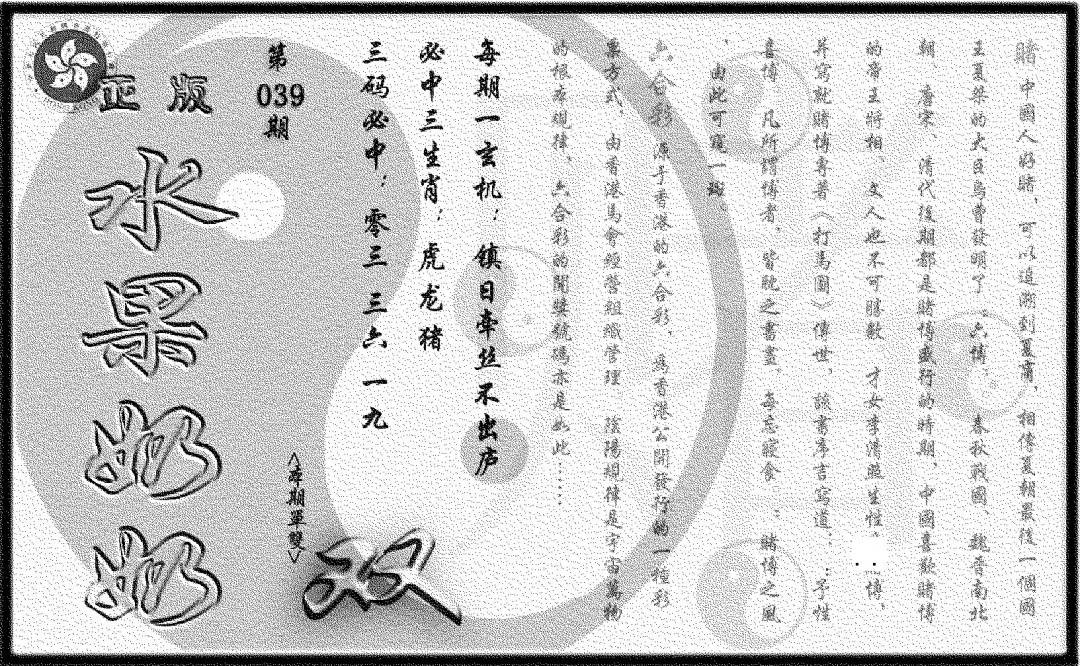 賭 中國人好賭、可以追溯到夏商，相傳夏朝最後一個國
王夏桀的大臣烏曹發明了“六博； 春秋戰國、魏晉南北
朝、唐宋、清代後期都是賭博盛行的時期、中國喜歡賭博
的帝王將相 文人也不可勝數 才女李清照生性 博、
并寫就賭博專著《打馬圖》傳世、該書序言寫道：：予性
喜博、凡所謂博者、皆耽之晝盡、每忘寢食 ；賭博之風
、由此可窺一斑。
六合彩 源于香港的六合彩、為香港公開發行的一種彩
票方式、由香港馬會經營組織管理 陰陽規律是宇宙萬物
的根本規律、六合彩的開獎號碼亦是如此……
每期一玄机；镇日牵丝不出庐
必中三生肖；虎龙猪
三码必中；零三 三六 一九
第
039
期
<本期單雙>
双
正版
水果奶奶